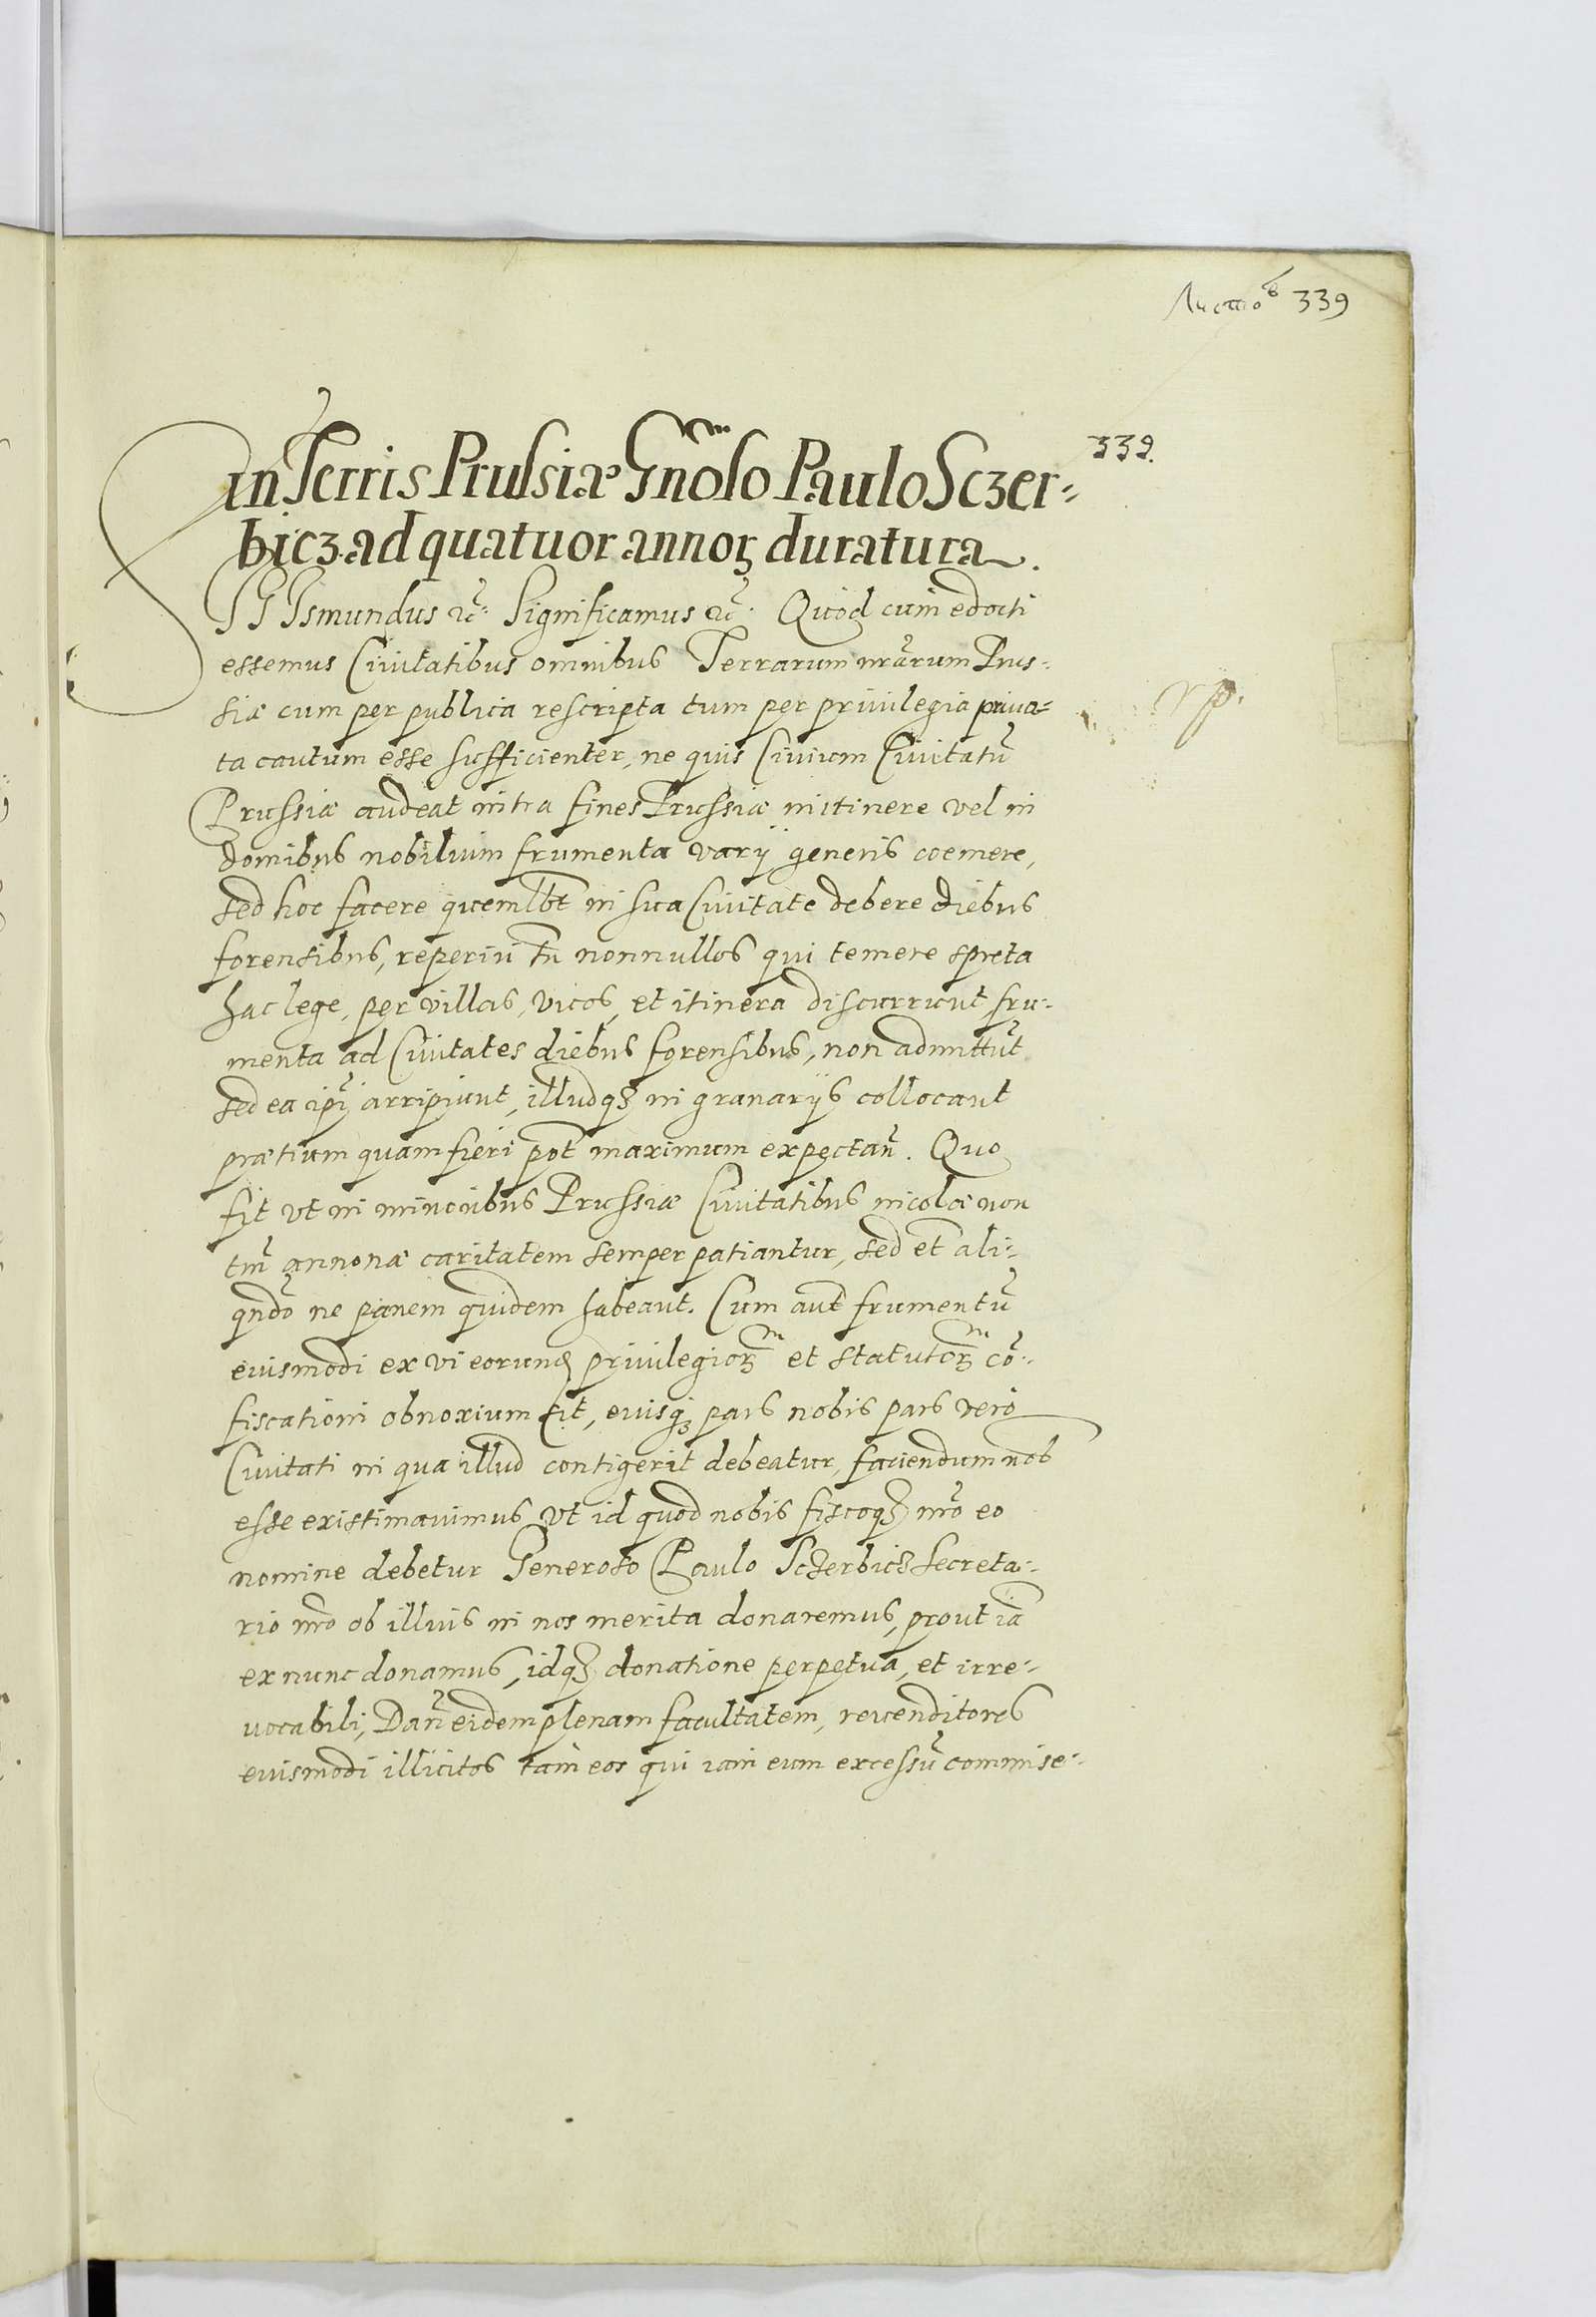 Листовъ 339
339.
in Terris Prussiæ Gnõso Paulo Sczer=
bicz ad quatuor annoꝝ duratura.
SIGIsmundus ꝛc̃: Significamus ꝛc̃. Quod cum edocti
essemus Ciuitatibus omnibus Terrarum nr̃arum Prus=
siæ cum per publica rescripta tum per priuilegia priua=
ta cautum esse sufficienter, ne quis Ciuium Ciuitatũ
Prussiæ audeat intra fines Prussiæ in itinere vel in
domibus nobilium frumenta varij generis coemere,
sed hoc facere quemlbt̃ in sua Ciuitate debere diebus
forensibus, reperiri tñ nonnullos qui temere spreta
hac lege, per villas, vicos, et itinera discurrunt, fru=
menta ad Ciuitates diebus forensibus, non admittũt
sed ea ip̃i arripiunt, illudqꝫ in granarijs collocant
prætium quam fieri pot̃ maximum expectañ. Quo
fit vt in minoribus Prussiæ Ciuitatibus incolæ non
tm̃ annonæ caritatem semper patiantur, sed et ali=
qñdo ne panem quidem habeant. Cum aut̃ frumentũ
euismodi ex vi eorund priuilegioꝝm et statutoꝝm cõ=
fiscationi obnoxium sit, euisqꝫ pars nobis pars vero
Ciuitati in qua illud contigerit debeatur, faciendum nob
esse existimauimus, vt id quod nobis fiscoqꝫ nr̃o eo
nomine debetur Generoso Paulo Sczerbicz Secreta=
rio nr̃o ob illius in nos merita donaremus, prout iã
ex nunc donamus, idqꝫ donatione perpetua, et irre=
uocabili, Dañ eidem plenam facultatem, reuenditores
euismodi illicitos tam eos qui iam eum excessũ commise=